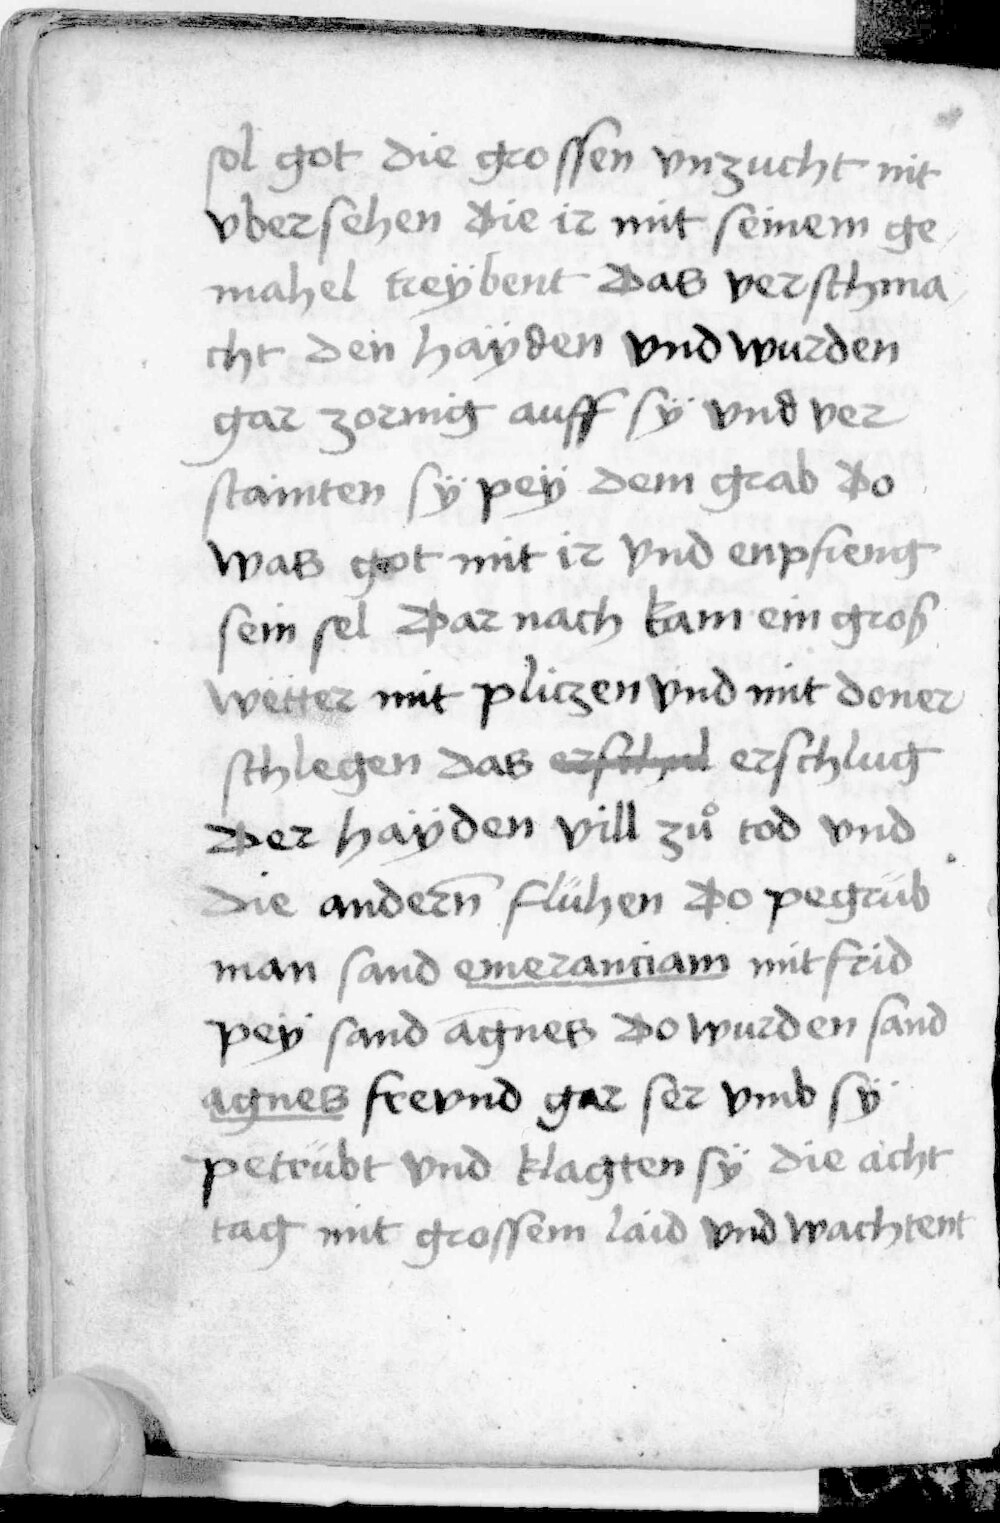 sol got die grossen vnzucht nit
vbersehen Die ir mit seinem ge
mahel treÿbent Das verschma
cht den haÿden vnd wurden
gar zornig auff sÿ vnd ver
stainten sÿ peÿ dem grab Do
was got mit ir vnd enpfieng
sein sel Dar nach kam ein groß
wetter mit pliczen vnd mit doner
schlegen das erschul erschlug
Der haÿden vill zů tod vnd
die andern̄ flühen Do pegrüb
man sand emeranciam mit frid
peÿ sand agnes Do wurden sand
agnes frevnd gar ser vmb sÿ
petrübt vnd klagten sÿ die acht
tag mit grossem laid vnd wachtent